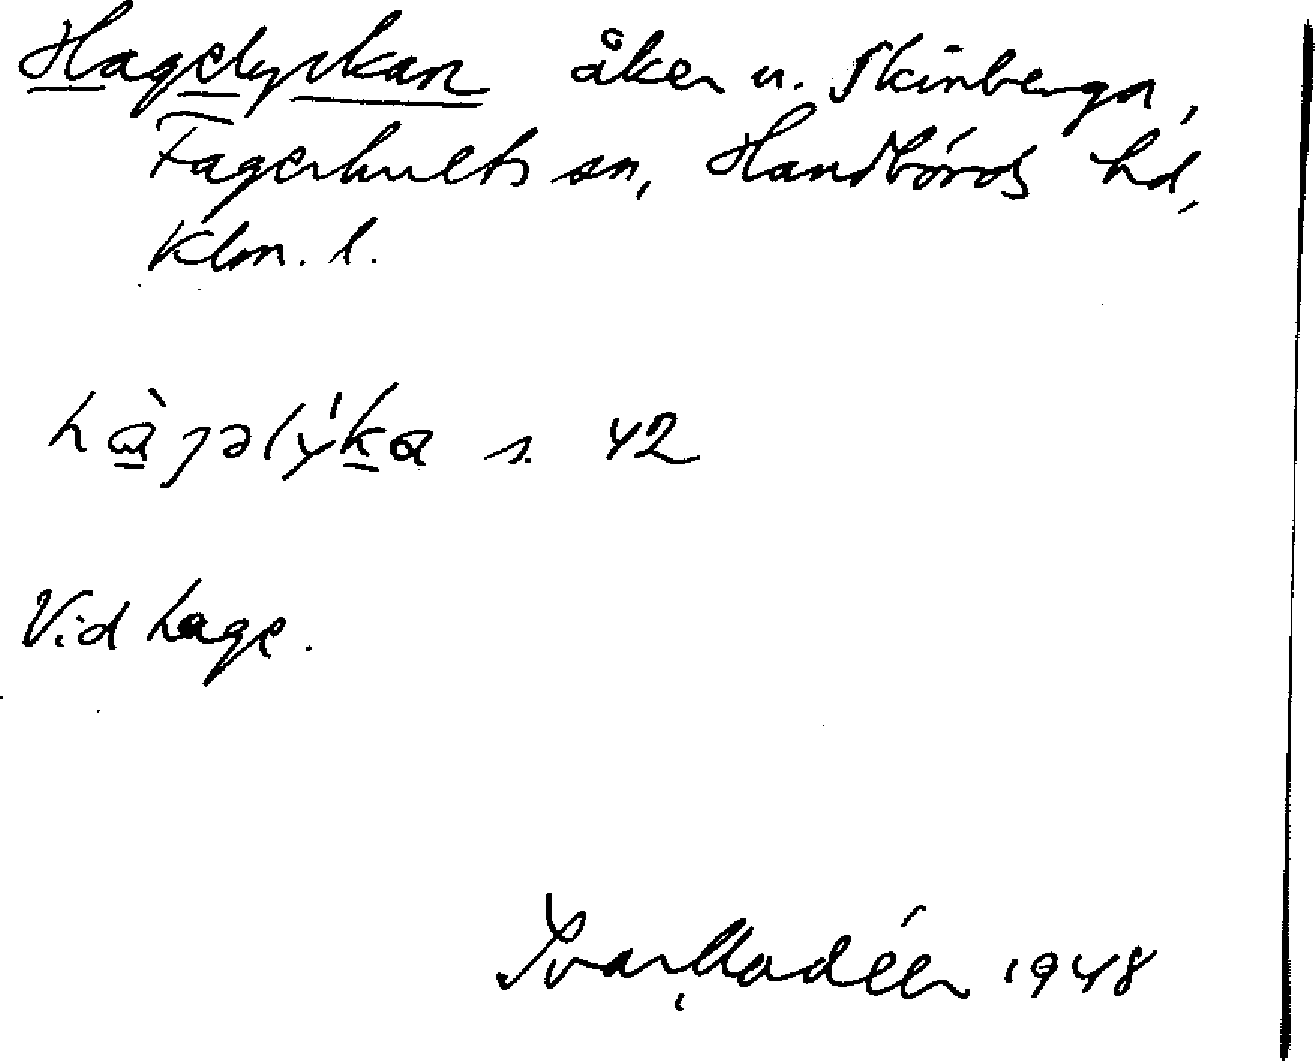 Hagelyckan åker u. Skinberga,
Fagerhults sn, Handbörds hd,
Klm. l.
hàgəlýka s. 42
Vid hage.
Ivar Modéer 1948